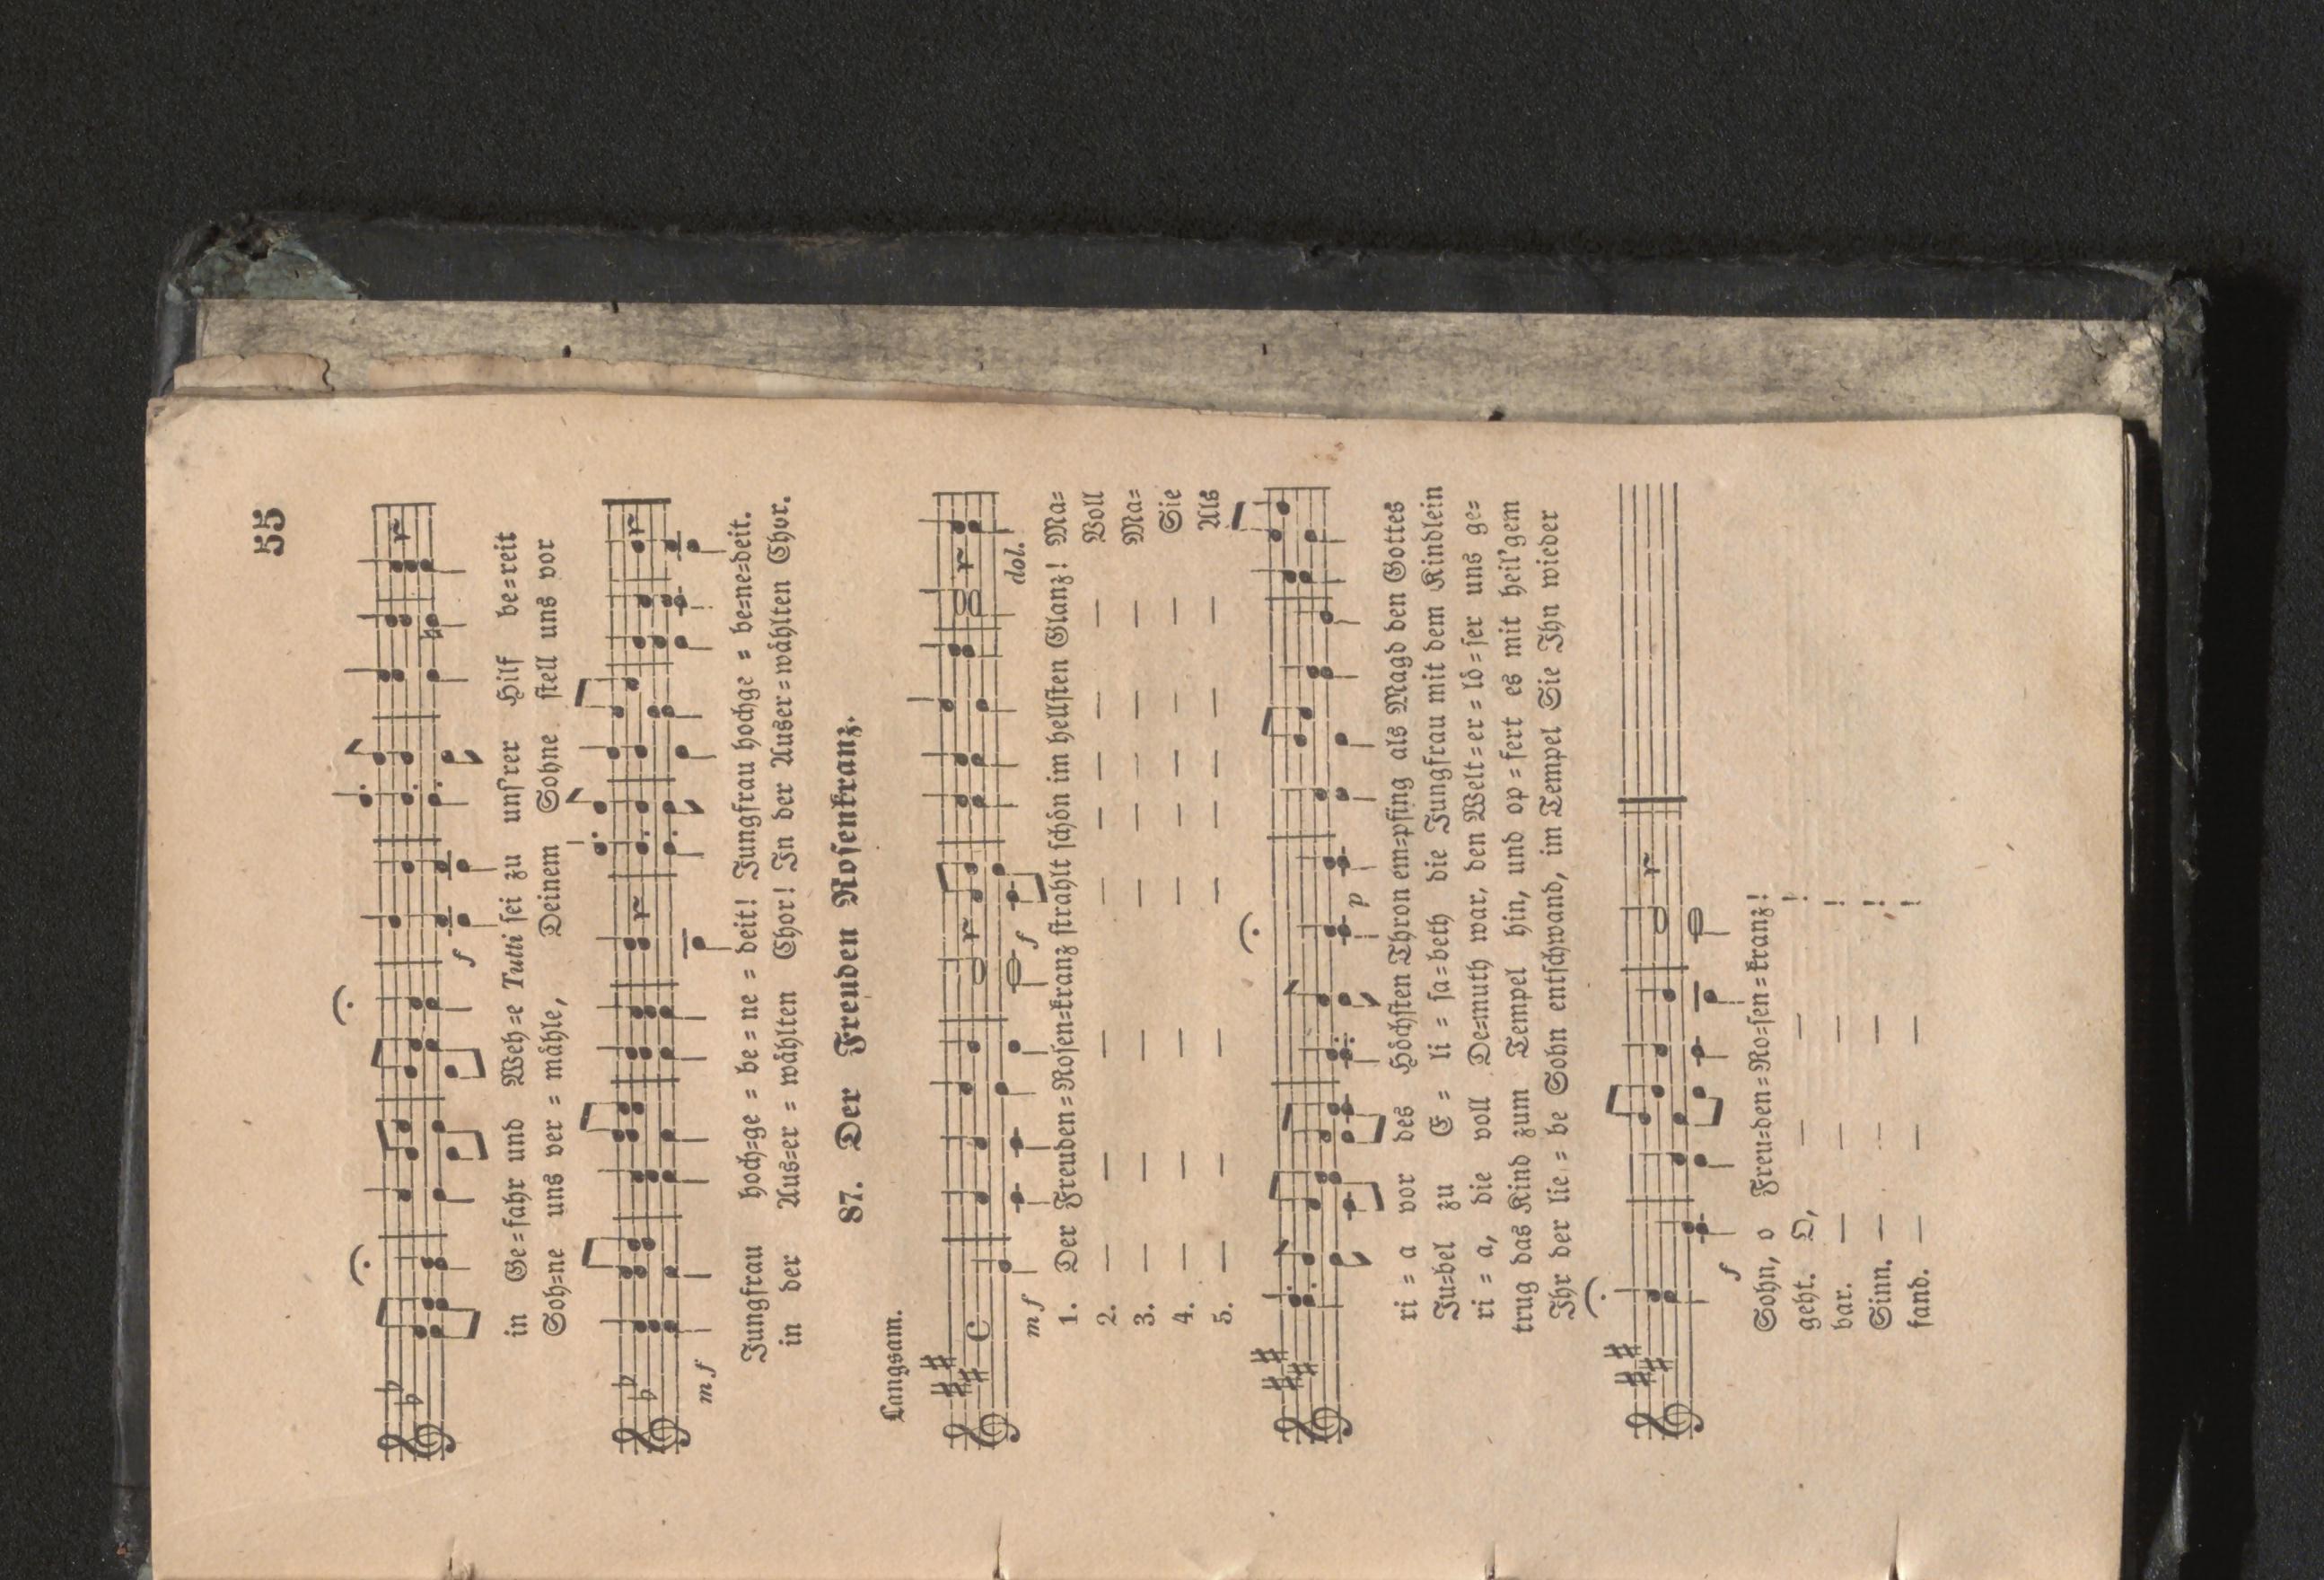 55
f
in Ge=fahr und Weh=e Tutti sei zu unsrer Hilf be=reit
Soh=ne uns ver = mähle, Deinem Sohne stell uns vor
mf
Jungfrau hoch=ge = be = ne = deit! Jungfrau hochge = be=ne=deit.
in der Aus=er = wählten Chor! In der Auser=wählten Chor.
87. Der Freuden Rosenkranz.
Langsam.
mf f dol.
1. Der Freuden=Rosen=kranz strahlt schön im hellsten Glanz! Ma=
2. — — — — — — — — Voll
3. — — — — — — — — Ma=
4. — — — — — — — — Sie
5. — — — — — — — — Als
p
ri = a vor des Höchsten Thron em=pfing als Magd den Gottes
Ju=bel zu E = li = sa=beth die Jungfrau mit dem Kindlein
ri = a, die voll De=muth war, den Welt=er = lö = ser uns ge=
trug das Kind zum Tempel hin, und op = fert es mit heil'gem
Ihr der lie = be Sohn entschwand, im Tempel Sie Ihn wieder
f
Sohn, o Freu=den=Ro=sen=kranz!
geht. O, — — !
bar. — — — !
Sinn. — — — !
fand. — — — !